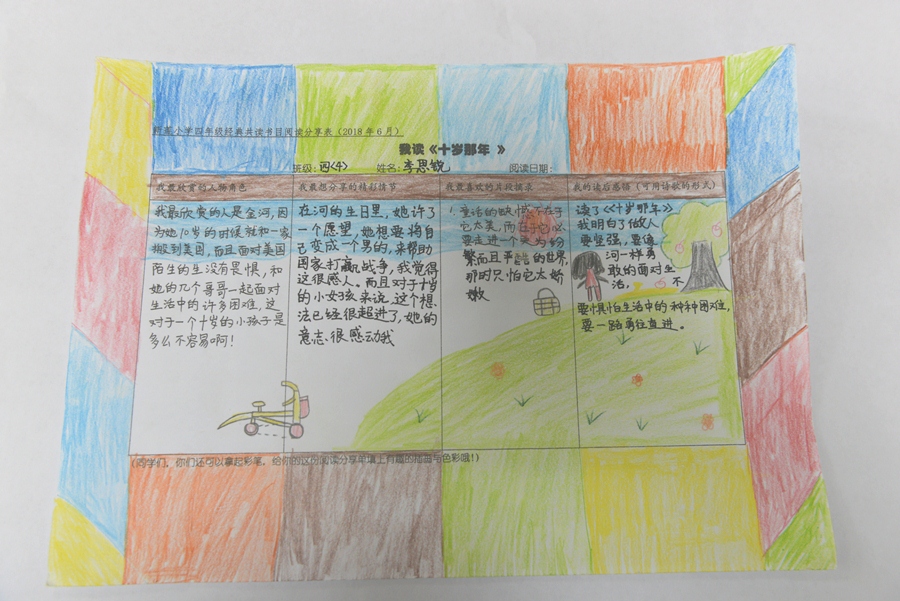 小学四年级经典共读书目阅读分享表（2018年6月）
我读《十岁那年 》
班级：四〈4〉 姓名：李思锐 阅读日期：
我最欣赏的人物角色
我最欣赏的人是金河，因
为她10岁的时候就和一家
搬到美国，而且面对美国
陌生的生没有畏惧，和
她的几个哥哥一起面对
生活中的许多困难，这
对于一个十岁的小孩子是
多么不容易啊！
我最想分享的精彩情节
在河的生日里，她许了
一个愿望，她想要将自
己变成一个男的，来帮助
国家打赢战争，我觉得
这很感人。而且对于十岁
的小女孩来说，这个想
法已经很超进了，她的
意志很感动我
我最喜欢的片段摘录
童话的缺憾不在于
它太美，而在于它必
要走进一个更为纷
繁而且严酷的世界，
那时只怕它太娇
嫩
我的读后感悟（可用诗歌的形式）
读了《《十岁那年》
我明白了做人
要坚强，要像
河一样勇
敢的面对生
活， 不
要惧怕生活中的种种困难，
要一路勇往直进。
（同学们，你们还可以拿起彩笔，给你的这份阅读分享单填上有趣的插曲与色彩哦！）